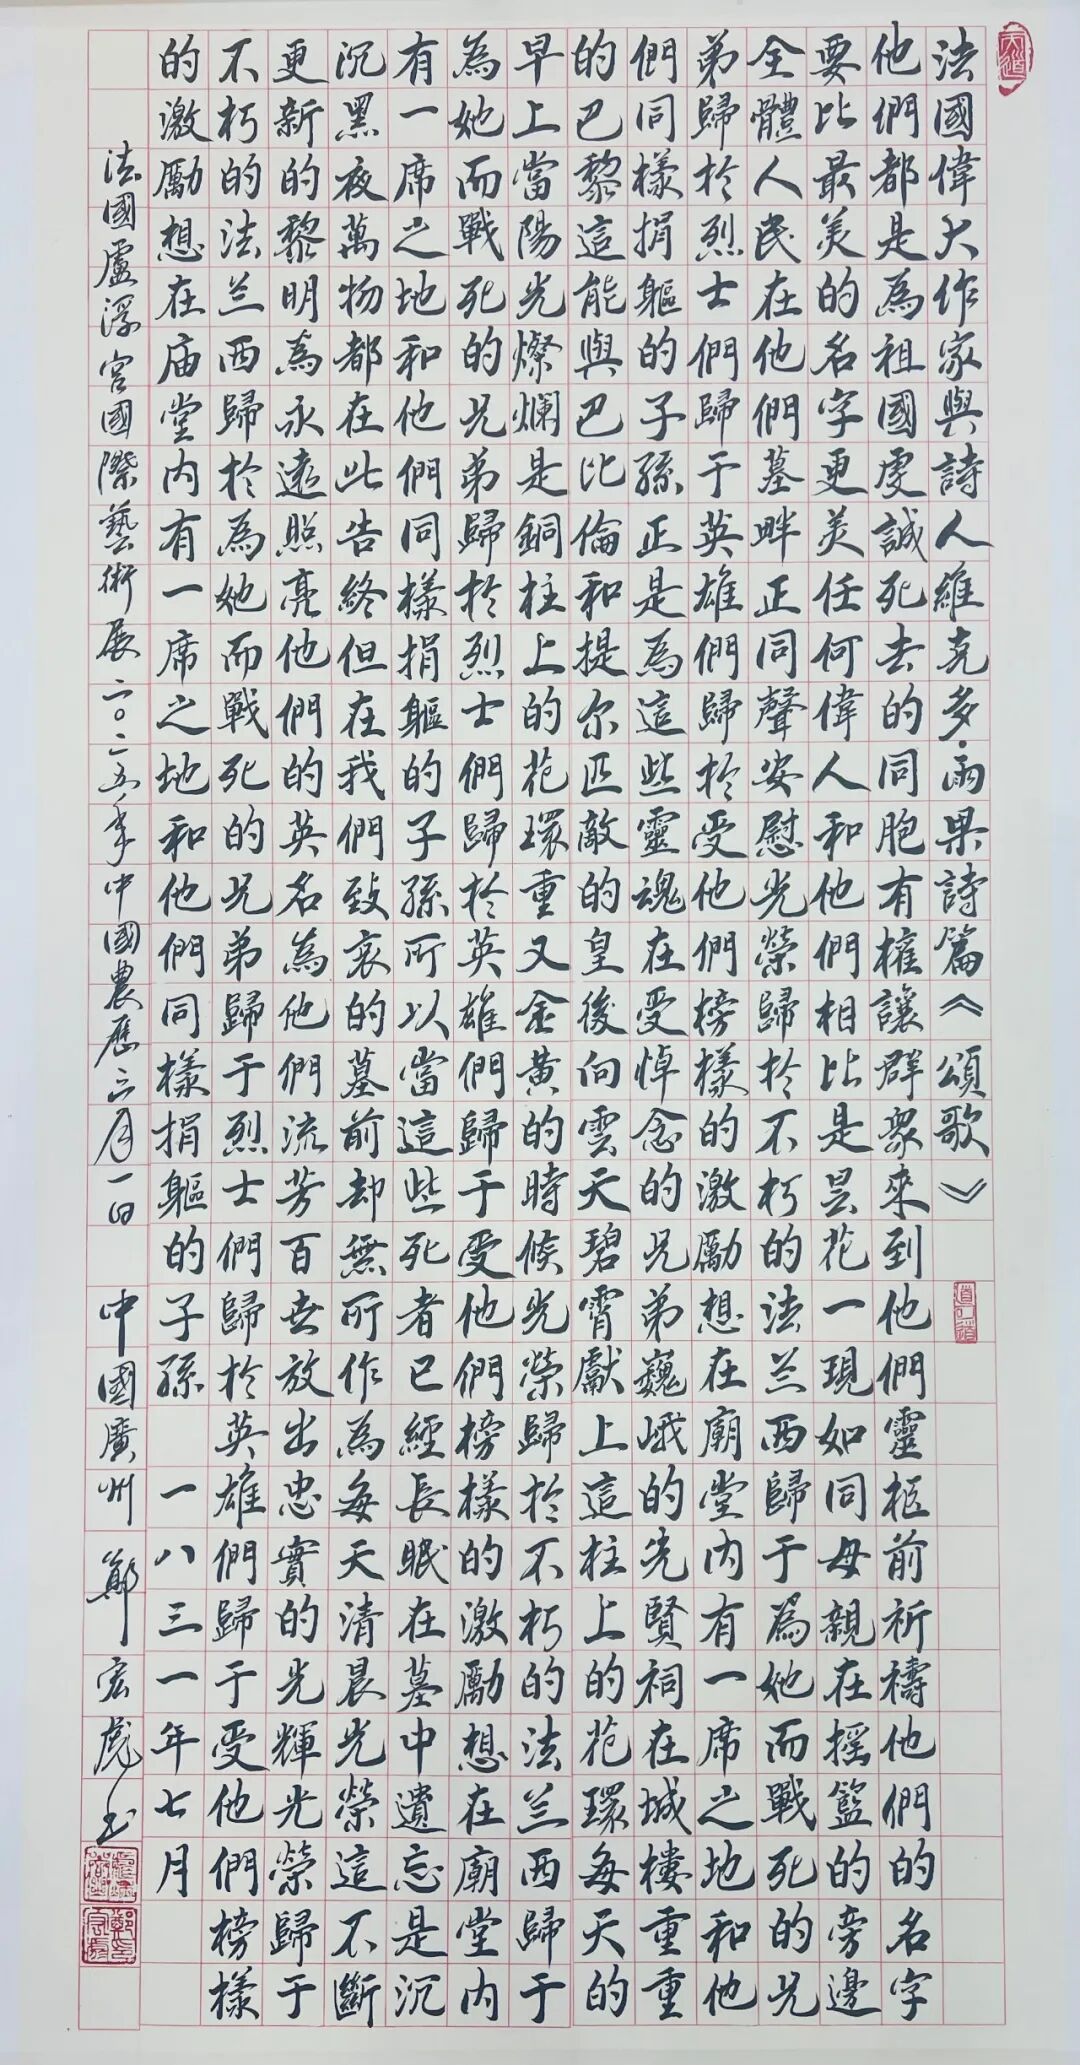 法國偉大作家與詩人維克多·雨果詩篇《頌歌》
他們都是為祖國虔誠死去的同胞有權讓群眾來到他們靈柩前祈禱他們的名字
要比最美的名字更美任何偉人和他們相比是昙花一現如同母親在摇籃的旁邊
全體人民在他們墓畔正同聲安慰光榮歸於不朽的法兰西歸于為她而戰死的兄
弟歸於烈士們歸于英雄們歸於受他們榜樣的激勵想在廟堂内有一席之地和他
們同樣捐軀的子孫正是為這些靈魂在受悼念的兄弟巍峨的先賢祠在城樓重重
的巴黎這能與巴比倫和提尔匹敵的皇後向雲天碧霄獻上這柱上的花環每天的
早上當陽光燦爛是銅柱上的花環重又金黄的時候光榮歸於不朽的法兰西歸于
為她而戰死的兄弟歸於烈士們歸於英雄們歸于受他們榜樣的激勵想在廟堂内
有一席之地和他們同樣捐軀的子孫所以當這些死者已經長眠在墓中遺忘是沉
沉黑夜萬物都在此告終但在我們致哀的墓前却無所作為每天清晨光榮這不斷
更新的黎明為永遠照亮他們的英名為他們流芳百世放出忠實的光輝光榮歸于
不朽的法兰西歸於為她而戰死的兄弟歸于烈士們歸於英雄們歸于受他們榜樣
的激勵想在庙堂内有一席之地和他們同樣捐軀的子孫 一八三一年七月
法國盧浮宮國際藝術展二〇二五年中國農歷六月一日 中國廣州 鄭宏彪书